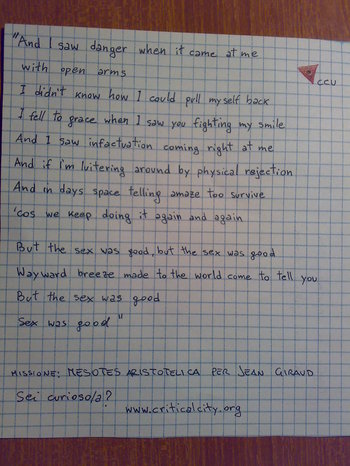 "And I saw danger when it came at me
with open arms
CCU
I didn't know how I could pull myself back
I fell to grace when I saw you fighting my smile
And I saw infactuation coming right at me
And if i'm luitering around by physical rejection
And in days space telling amaze too survive
'cos we keep doing it again and again
But the sex was good, but the sex was good
Wayward breeze made to the world come to tell you
But the sex was good
Sex was good"
MISSIONE: MESOTES ARISTOTELICA PER JEAN GIRAUD
Sei curioso/a?
www.criticalcity.org